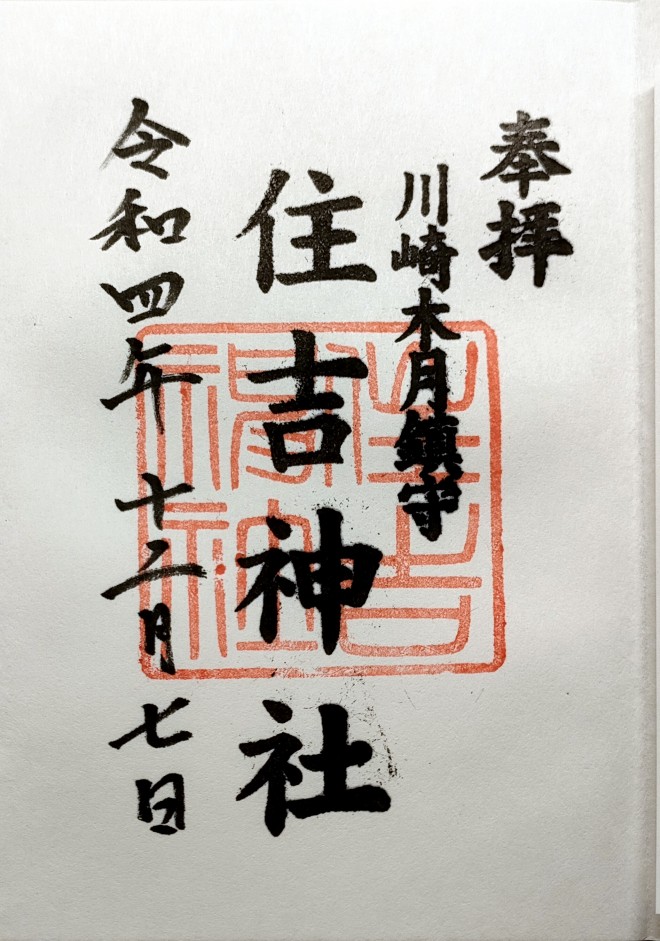 奉拝
川崎木月鎮守
住吉神社
令和四年十二月七日